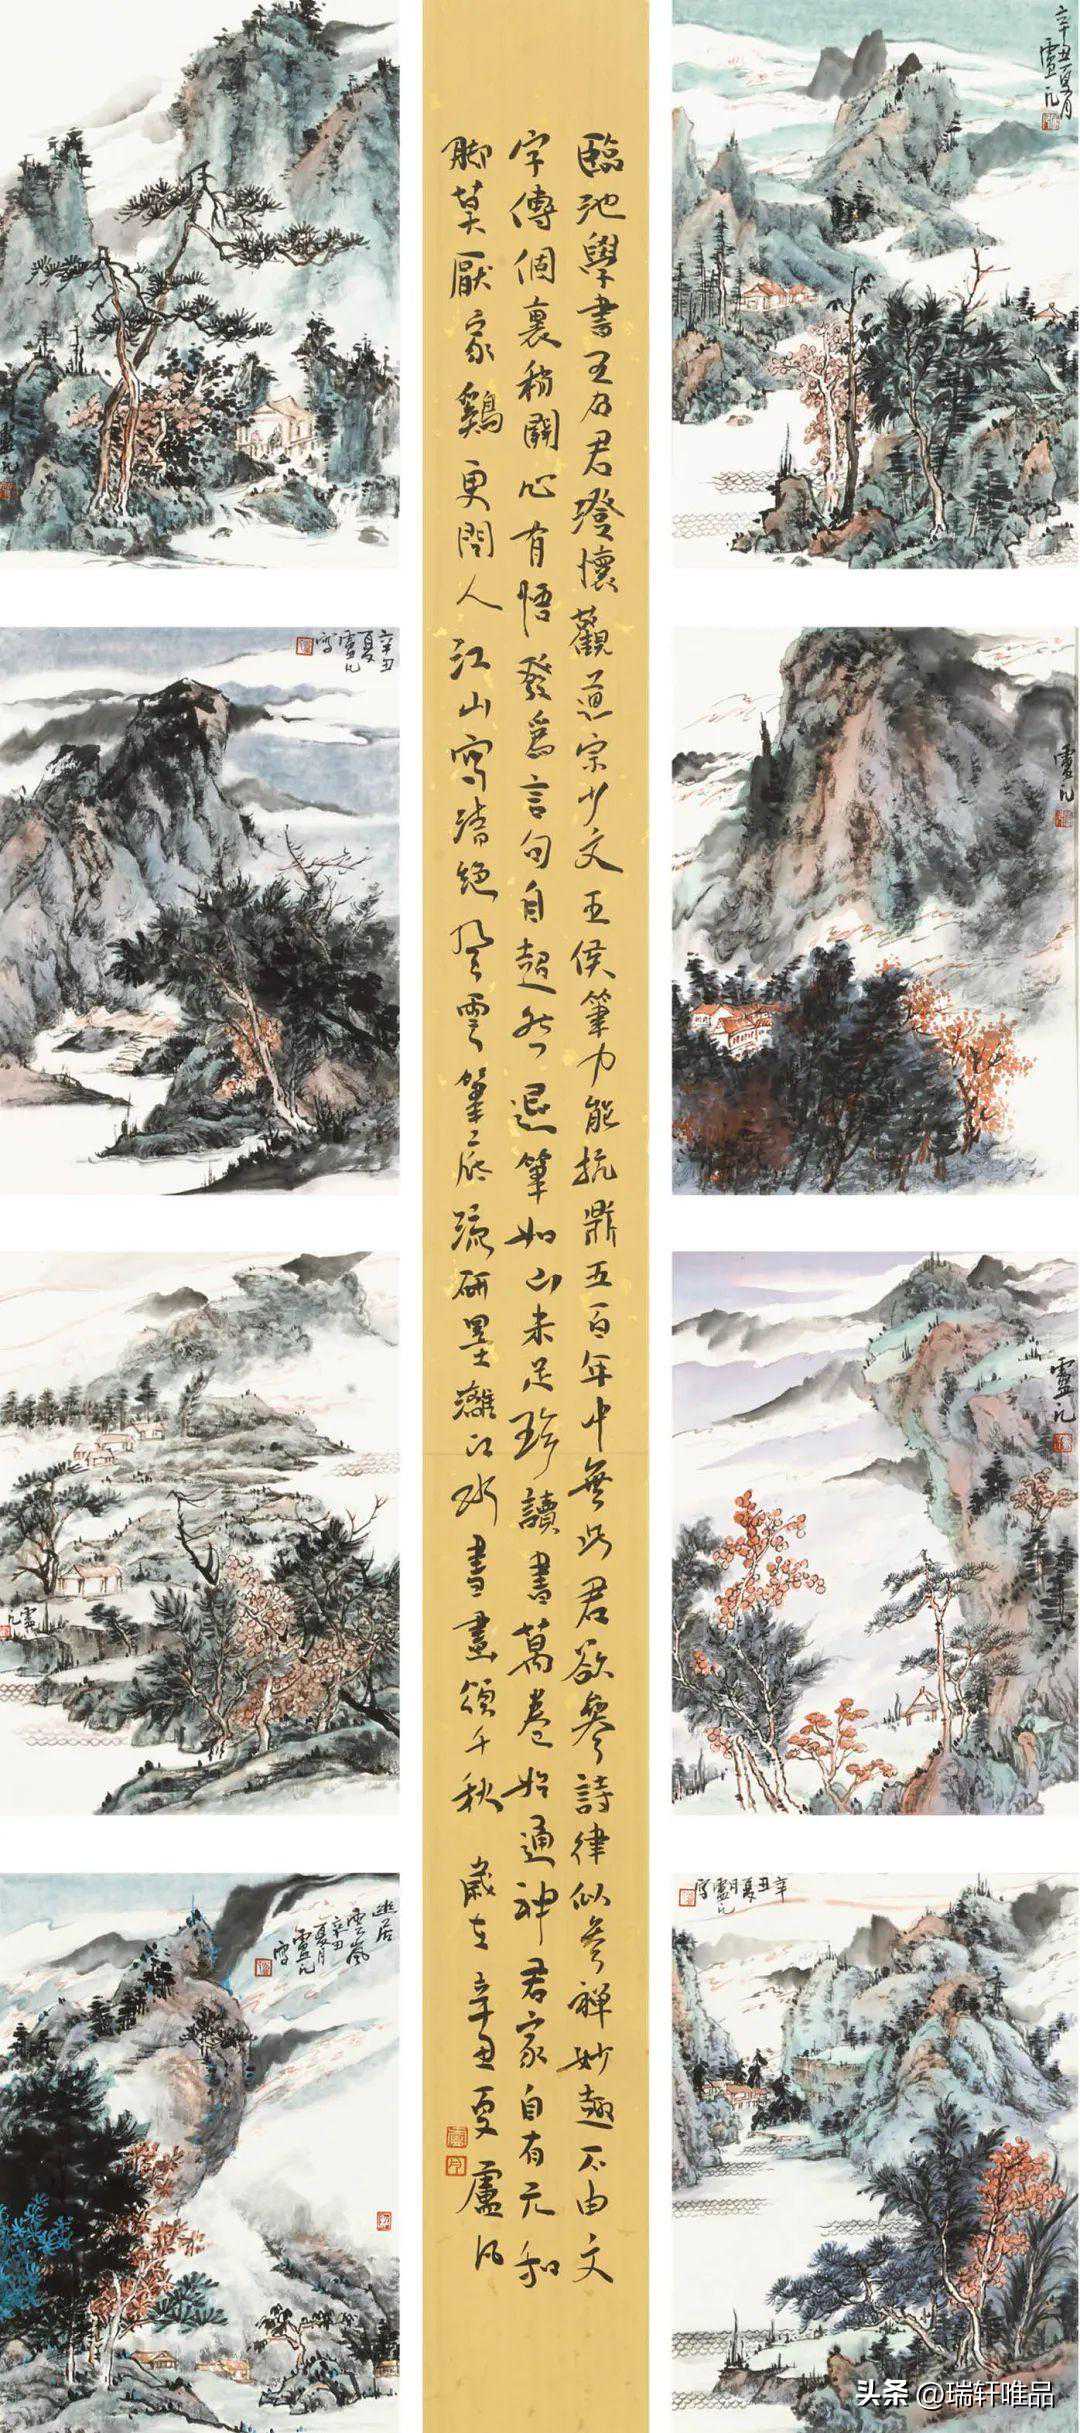 臨池學書王右君澄懷觀道宗少文王侯筆力能抗鼎五百年中無此君欲參詩律似參禪妙趣不由文
字傳個裏稍關心有悟發爲言句自超然退筆如山未足珍讀書萬卷始通神君家自有元和
腳莫厭家鷄更問人 江山寫清絕風雲筆底流研墨灕江水書畫頌千秋 歲在辛丑夏盧凡
辛丑夏月
盧凡
辛丑
夏
盧凡
寫
盧凡
盧凡
盧凡
幽居
雲嵐
辛丑
夏月
盧凡
寫
辛丑夏月盧凡寫
头条 @瑞轩唯品